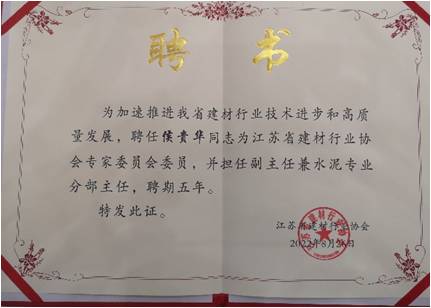 聘书
为加速推进我省建材行业技术进步和高质
量发展，聘任侯贵华同志为江苏省建材行业协
会专家委员会委员，并担任副主任兼水泥专业
分部主任，聘期五年。
特发此证。
江苏省建材行业协会
2022年8月26日